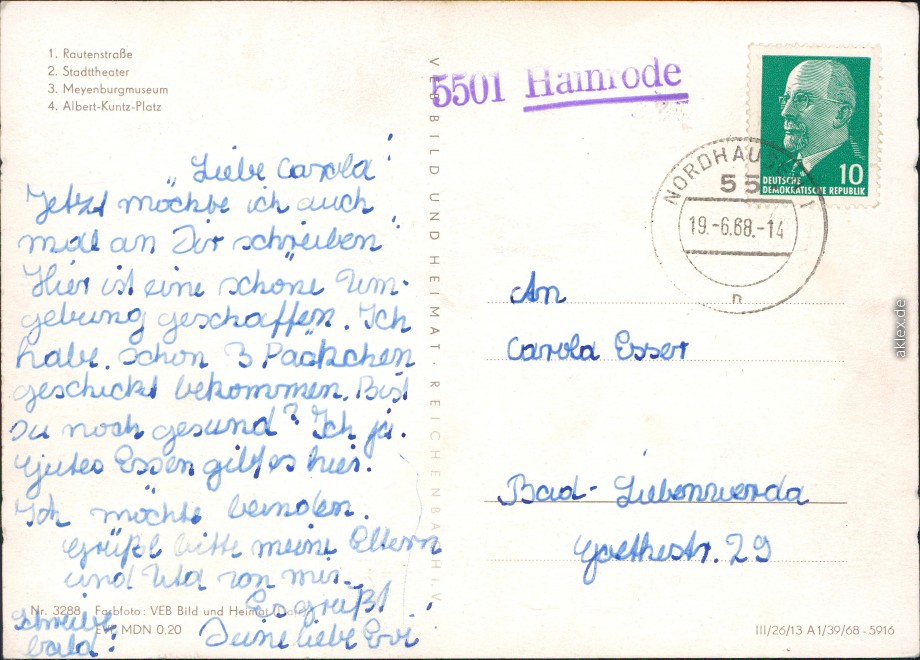 1. Rautenstraße
2. Stadttheater
3. Meyenburgmuseum
4. Albert-Kuntz-Platz
„Liebe Carola!
Jetzt möchte ich auch
mal an Dir schreiben"
Hier ist eine schöne Um-
gebung geschaffen. Ich
habe. schon 3 Päckchen
geschickt bekommen. Bist
Du noch gesund? Ich ja.
Gutes Essen gibt es hier.
Ich möchte beenden.
Grüßt bitte meine Eltern
und Uta von mir.
Es grüßt
Deine liebe Evi!
Schreibe
bald!
Nr. 3288 Farbfoto: VEB Bild und Heimat
EVP MDN 0,20
VEB BILD UND HEIMAT · REICHENBACH I. V.
5501 Hainrode
NORDHAUSEN 1
55
19.-6.68.-14
n
10
DEUTSCHE
DEMOKRATISCHE REPUBLIK
An
Carola Esser
Bad-Liebenwerda
Goethestr. 29
III/26/13 A1/39/68-5916
aklex.de